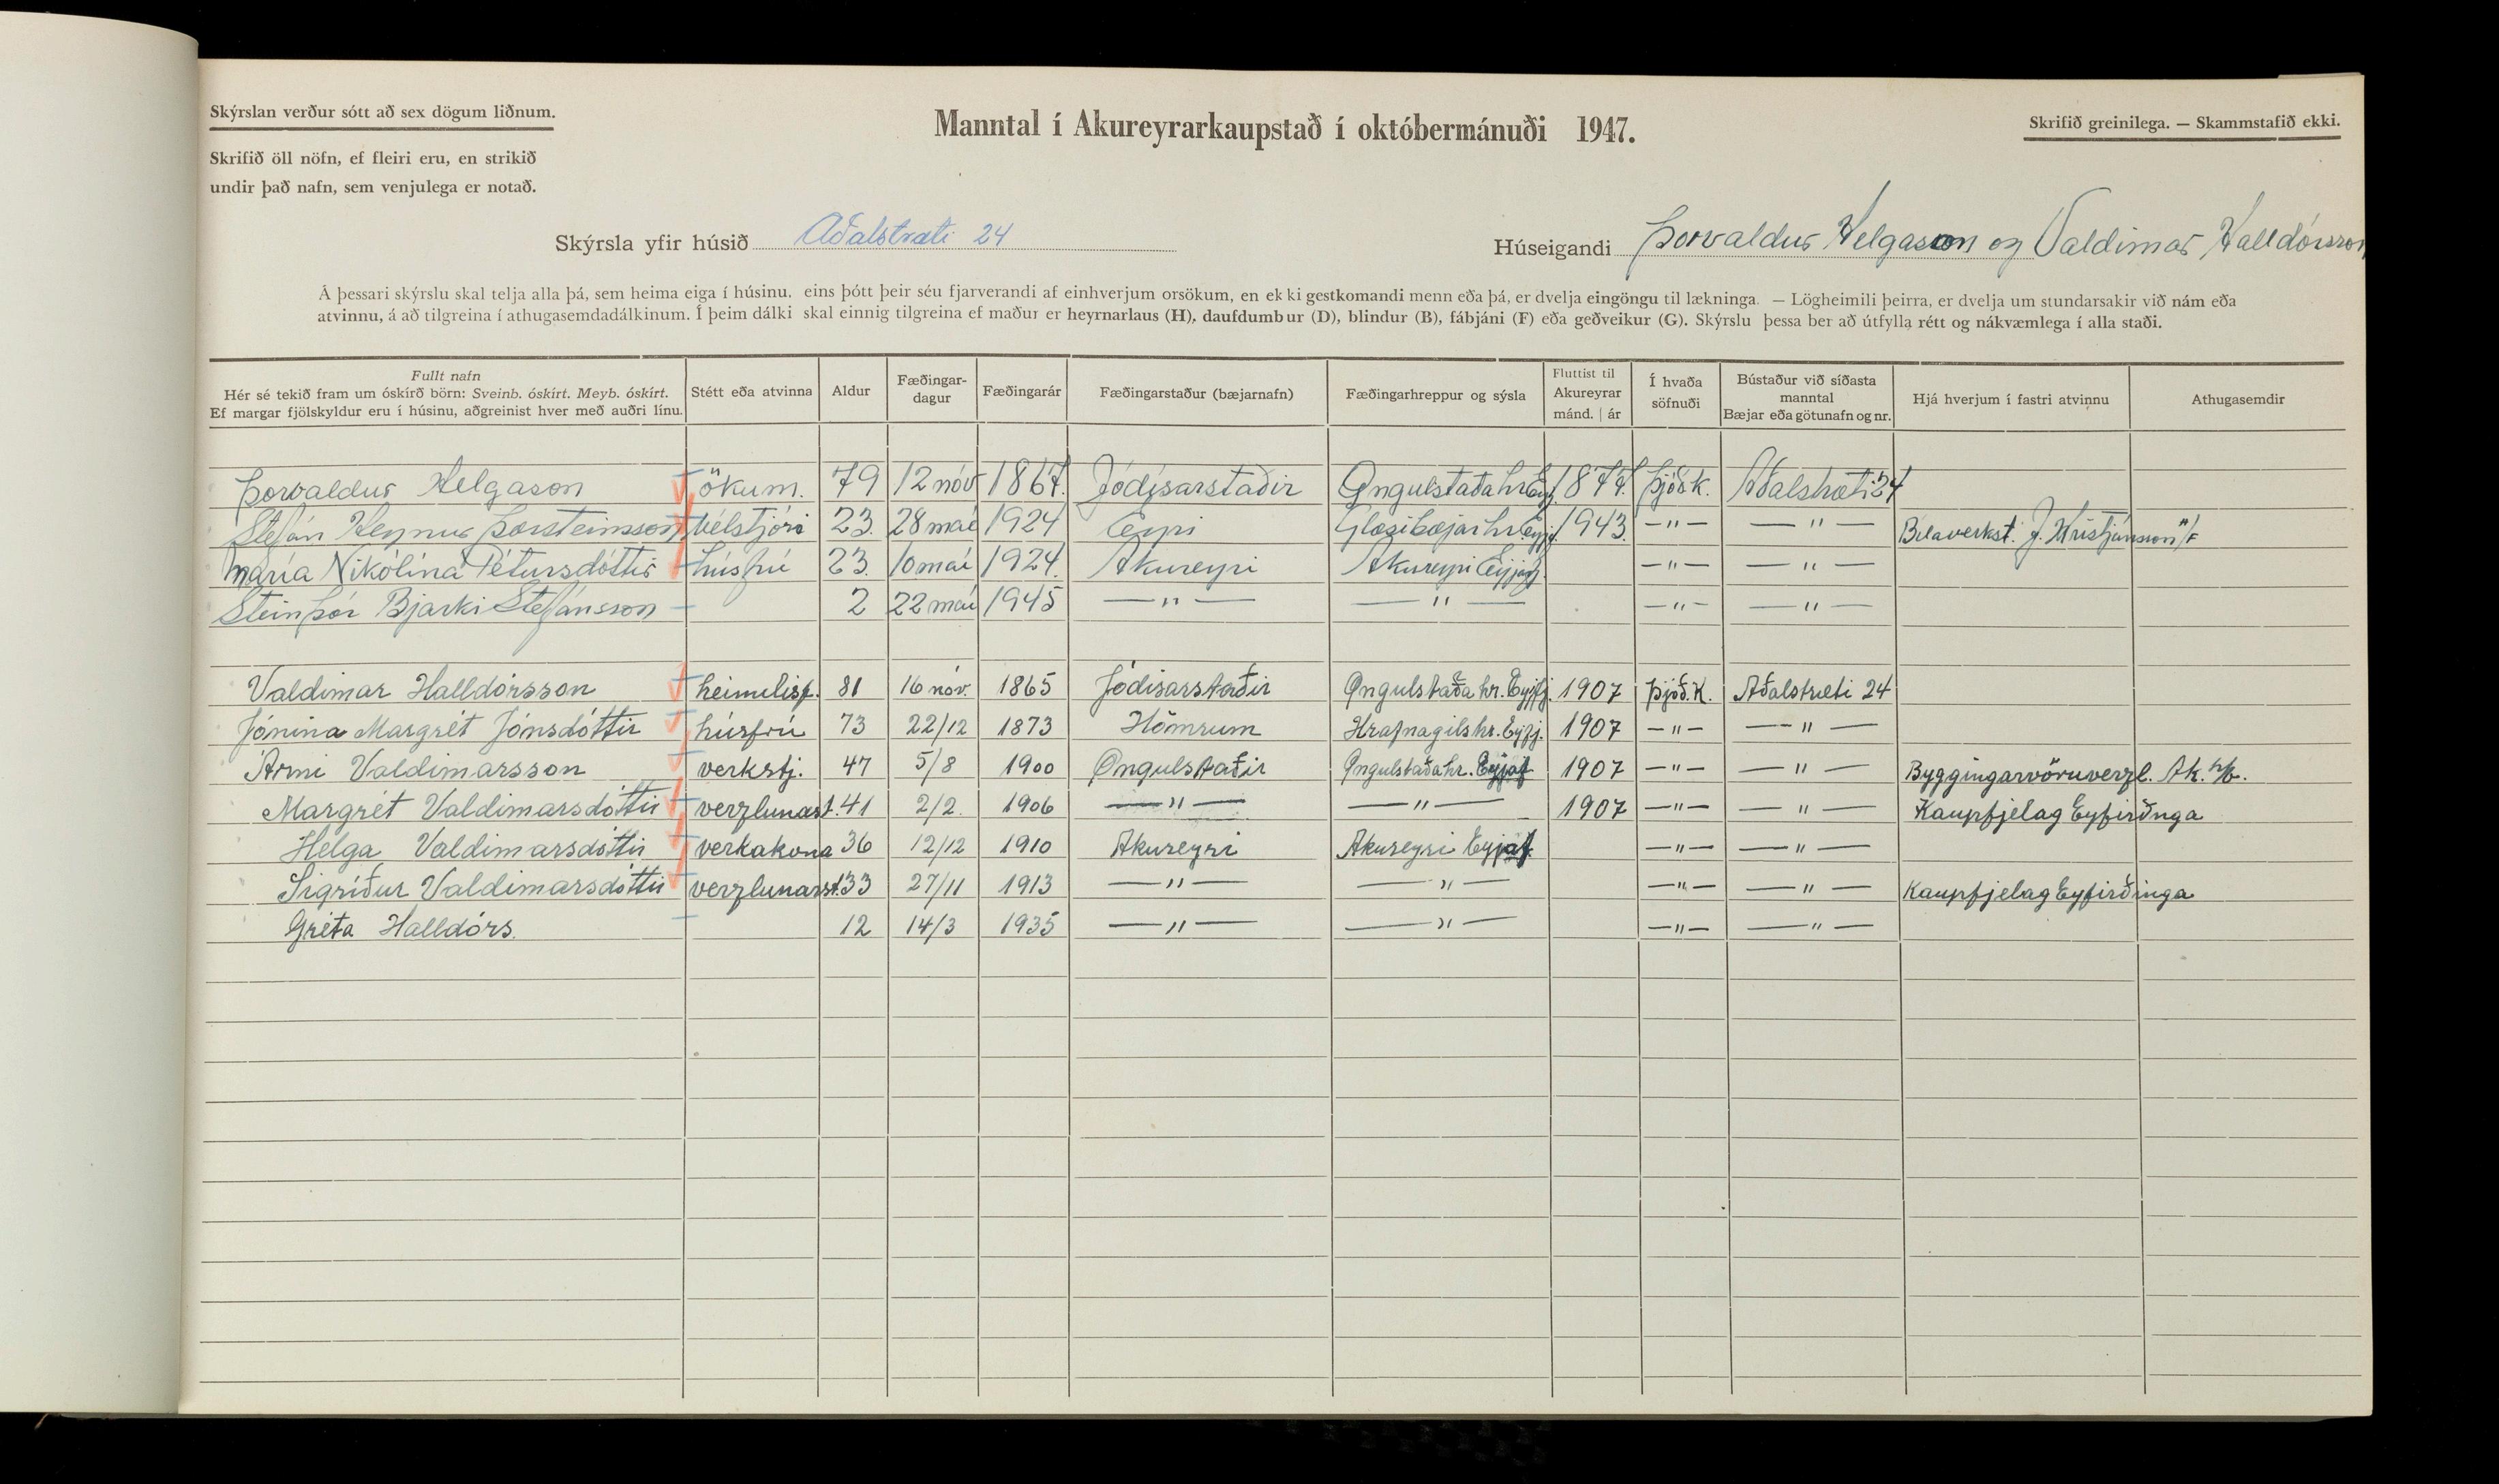 Skýrslan verður sótt að sex dögum liðnum.
Manntal í Akureyrarkaupstað í októbermánuði 1947.
Skrifið greinilega. — Skammstafið ekki.
Skrifið öll nöfn, ef fleiri eru, en strikið
undir það nafn, sem venjulega er notað.
Skýrsla yfir húsið Aðalstræti 24
Húseigandi Þorvaldur Helgason og Valdimar Halldórsson
Á þessari skýrslu skal telja alla þá, sem heima eiga í húsinu, eins þótt þeir séu fjarverandi af einhverjum orsökum, en ekki gestkomandi menn eða þá, er dvelja eingöngu til lækninga. — Lögheimili þeirra, er dvelja um stundarsakir við nám eða
atvinnu, á að tilgreina í athugasemdadálkinum. Í þeim dálki skal einnig tilgreina ef maður er heyrnarlaus (H), daufdumbur (D), blindur (B), fábjáni (F) eða geðveikur (G). Skýrslu þessa ber að útfylla rétt og nákvæmlega í alla staði.
Fullt nafn
Hér sé tekið fram um óskírð börn: Sveinb. óskírt. Meyb. óskírt.
Ef margar fjölskyldur eru í húsinu, aðgreinist hver með auðri línu.
Stétt eða atvinna
Aldur
Fæðingar-
dagur
Fæðingarár
Fæðingarstaður (bæjarnafn)
Fæðingarhreppur og sýsla
Fluttist til
Akureyrar
mánd. | ár
Í hvaða
söfnuði
Bústaður við síðasta
manntal
Bæjar eða götunafn og nr.
Hjá hverjum í fastri atvinnu
Athugasemdir
Þorvaldur Helgason ökum. 79 12 nóv 1867. Jódísarstaðir Öngulstaðahr Eyj. 1877. Þjóðk. Aðalstræti 24
Stefán Heynur Þorsteinsson vélstjóri 23. 28 maí 1924 Eyri Glæsibæjarhr. Eyjf. 1943. —"— —"— Bílaverkst. J. Kristjánsson h/f
María Nikólína Pétursdóttir húsfrú 23. 10 maí 1924. Akureyri Akureyri Eyjaf. —"— —"—
Steinþór Bjarki Stefánsson 2 22 maí 1945 —"— —"— —"— —"—
Valdimar Halldórsson heimilisf. 81 16 nóv. 1865 Jódisarstaðir Öngulstaða hr. Eyjfj. 1907 Þjóð.K. Aðalstræti 24
Jónína Margrét Jónsdóttir húsfrú 73 22/12 1873 Hömrum Hrafnagilshr. Eyfj. 1907 —"— —"—
Árni Valdimarsson verkstj. 47 5/8 1900 Öngulstaðir Öngulstaðahr. Eyjaf 1907 —"— —"— Byggingarvöruverzl. Ak. h/f.
Margrét Valdimarsdóttir verzlunarst. 41 2/2. 1906 —"— —"— 1907 —"— —"— Kaupfjelag Eyfirðnga
Helga Valdimarsdóttir verkakona 36 12/12 1910 Akureyri Akureyri Eyjaf —"— —"—
Sigríður Valdimarsdóttir verzlunarst. 33 27/11 1913 —"— —"— —"— —"— Kaupfjelag Eyfirðinga
Gréta Halldórs. 12 14/3 1935 —"— —"— —"— —"—